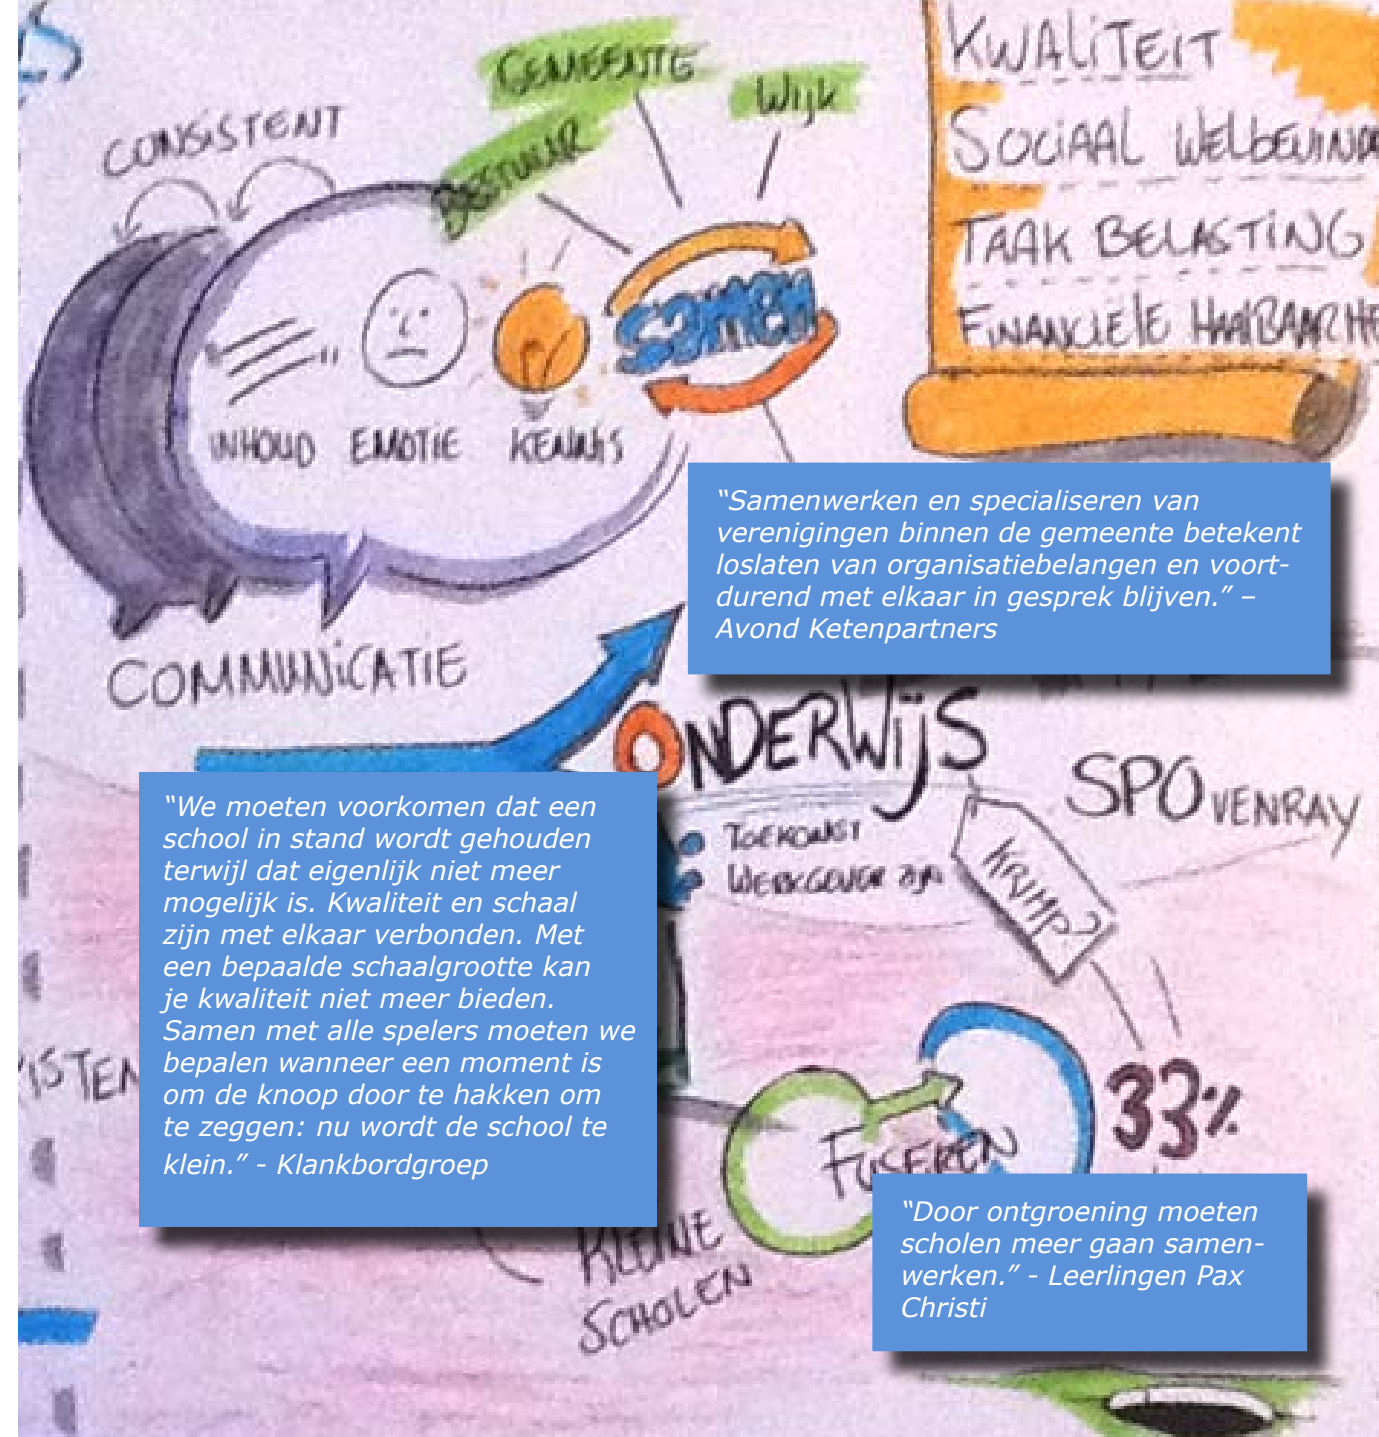 GEMEENTE
Wijk
BESTUUR
CONSISTENT
SAMEN
INHOUD EMOTIE KENNIS
COMMUNiCATIE
KWALiTEIT
SOCIAAL
TAAK BELASTING
FINANCIËLE
“Samenwerken en specialiseren van
verenigingen binnen de gemeente betekent
loslaten van organisatiebelangen en voort-
durend met elkaar in gesprek blijven.” –
Avond Ketenpartners
ONDERWijS
TOEKOMST
WERKGEVER ZIJN
SPO VENRAY
KRIMP?
“We moeten voorkomen dat een
school in stand wordt gehouden
terwijl dat eigenlijk niet meer
mogelijk is. Kwaliteit en schaal
zijn met elkaar verbonden. Met
een bepaalde schaalgrootte kan
je kwaliteit niet meer bieden.
Samen met alle spelers moeten we
bepalen wanneer een moment is
om de knoop door te hakken om
te zeggen: nu wordt de school te
klein.” - Klankbordgroep
33%
FUSEREN
KLEINE
SCHOLEN
“Door ontgroening moeten
scholen meer gaan samen-
werken.” - Leerlingen Pax
Christi